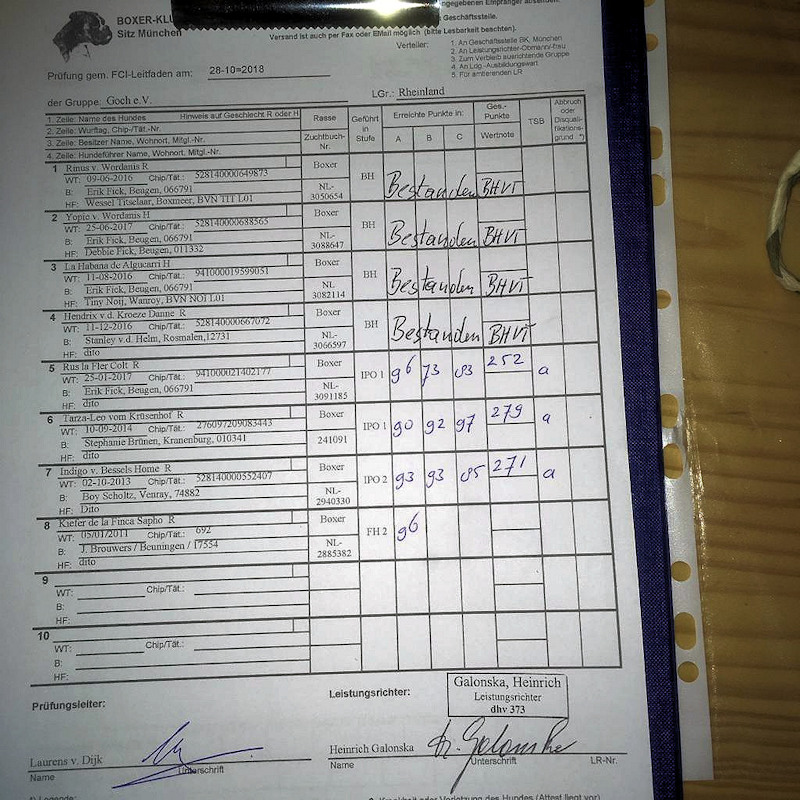 BOXER-KLU
Sitz München
ngegebenen Empfänger absenden.
Geschäftsstelle.
Versand ist auch per Fax oder EMail möglich (bitte Lesbarkeit beachten).
Verteiler:
1. An Geschäftsstelle BK, München
2. An Leistungsrichter-Obmann/frau
3. Zum Verbleib ausrichtende Gruppe
4. An Ldg.-Ausbildungswart
5. Für amtierenden LR
Prüfung gem. FCI-Leitfaden am: 28-10=2018
der Gruppe: Goch e.V. LGr.: Rheinland
1. Zeile: Name des Hundes Hinweis auf Geschlecht R oder H
2. Zeile: Wurftag, Chip-/Tät.-Nr.
3. Zeile: Besitzer Name, Wohnort, Mitgl.-Nr.
4. Zeile: Hundeführer Name, Wohnort, Mitgl.-Nr.
Rasse
Zuchtbuch-Nr.
Geführt in Stufe
Erreichte Punkte in:
A B C
Ges.-Punkte
Wertnote
TSB
Abbruch oder Disqualifikationsgrund *)
1 Rinus v. Wordanis R Boxer
WT: 09-06-2016 Chip/Tät.: 528140000649873
B: Erik Fick, Beugen, 066791 NL-3050654 BH Bestanden BHVT
HF: Wessel Titselaar, Boxmeer, BVN TIT L01
2 Yopie v. Wordanis H Boxer
WT: 25-06-2017 Chip/Tät.: 528140000688565
B: Erik Fick, Beugen, 066791 NL-3088647 BH Bestanden BHVT
HF: Debbie Fick, Beugen, 011332
3 La Habana de Algucarri H Boxer
WT: 11-08-2016 Chip/Tät.: 941000019599051
B: Erik Fick, Beugen, 066791 NL 3082114 BH Bestanden BHVT
HF: Tiny Noij, Wanroy, BVN NOI L01
4 Hendrix v.d. Kroeze Danne R Boxer
WT: 11-12-2016 Chip/Tät.: 528140000667072
B: Stanley v.d. Helm, Rosmalen,12731 NL-3066597 BH Bestanden BHVT
HF: dito
5 Rus la Fler Colt R Boxer
WT: 25-01-2017 Chip/Tät.: 941000021402177
B: Erik Fick, Beugen, 066791 NL-3091185 IPO 1 96 73 83 252 a
HF: dito
6 Tarza-Leo vom Krüsenhof R Boxer
WT: 10-09-2014 Chip/Tät.: 276097209083443
B: Stephanie Brünen, Kranenburg, 010341 241091 IPO 1 90 92 97 279 a
HF: dito
7 Indigo v. Bessels Home R Boxer
WT: 02-10-2013 Chip/Tät.: 528140000552407
B: Boy Scholtz, Venray, 74882 NL-2940330 IPO 2 93 93 85 271 a
HF: Dito
8 Kiefer de la Finca Sapho R Boxer
WT: 05/01/2011 Chip/Tät.: 692
B: J. Brouwers / Beuningen / 17554 NL-2885382 FH 2 96
HF: dito
9
WT: Chip/Tät.:
B:
HF:
10
WT: Chip/Tät.:
B:
HF:
Prüfungsleiter: Leistungsrichter:
Galonska, Heinrich
Leistungsrichter
dhv 373
Laurens v. Dijk Heinrich Galonska H. Galonska
Name Unterschrift Name Unterschrift LR-Nr.